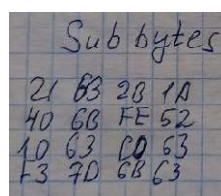 Sub bytes
21 63 2B 1A
40 6B FE 52
10 63 C0 63
F3 7D 6B 63